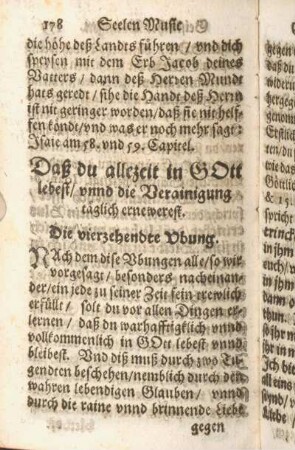 178 Seelen Music
die höhe deß Landts führen / vnd dich
speysen mit dem Erb Jacob deines
Vatters / dann deß Herren Mundt
hats geredt / sihe die Handt deß Herrn
ist nit geringer worden / daß sie nit helf-
fen köndt / vnd was er noch mehr sagt
Isaie am 58. vnd 59. Capitel.
Daß du allezeit in GOtt
lebest / vnnd die Verainigung
täglich ernewerest.
Die vierzehendte Vbung.
NAch dem dise Vbungen alle / so wir
vorgesagt / besonders nacheinan-
der / ein jede zu seiner Zeit sein trewlich
erfüllt / solt du vor allen Dingen er-
lernen / daß du warhafftigklich vnnd
vollkommenlich in GOtt lebest vnnd
bleibest. Vnd diß muß durch zwo Tu-
gendten beschehen / nemblich durch den
wahren lebendigen Glauben / vnnd
durch die raine vnnd brinnende Liebe
gegen